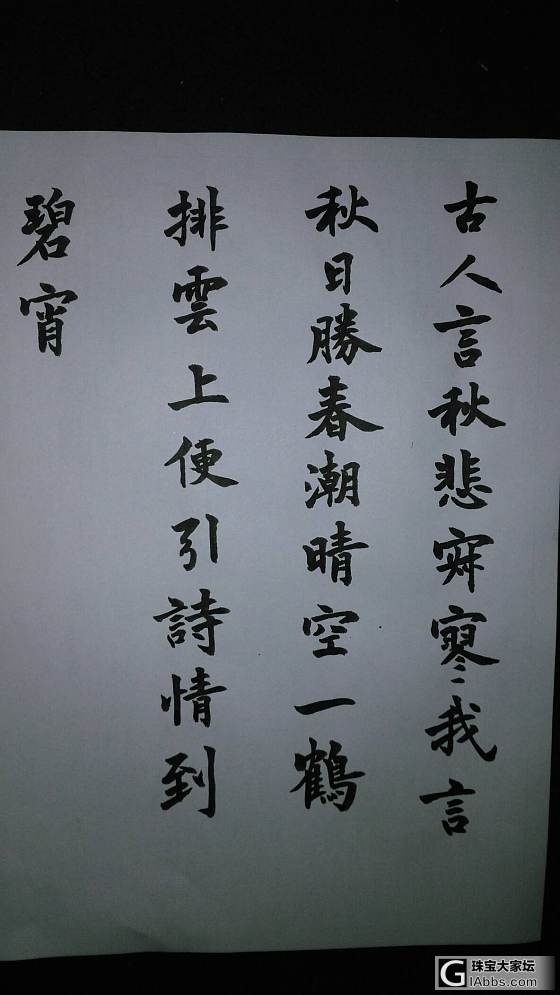 古人言秋悲寂寥我言
秋日勝春潮晴空一鶴
排雲上便引詩情到
碧宵
珠宝大家坛
GIAbbs.com